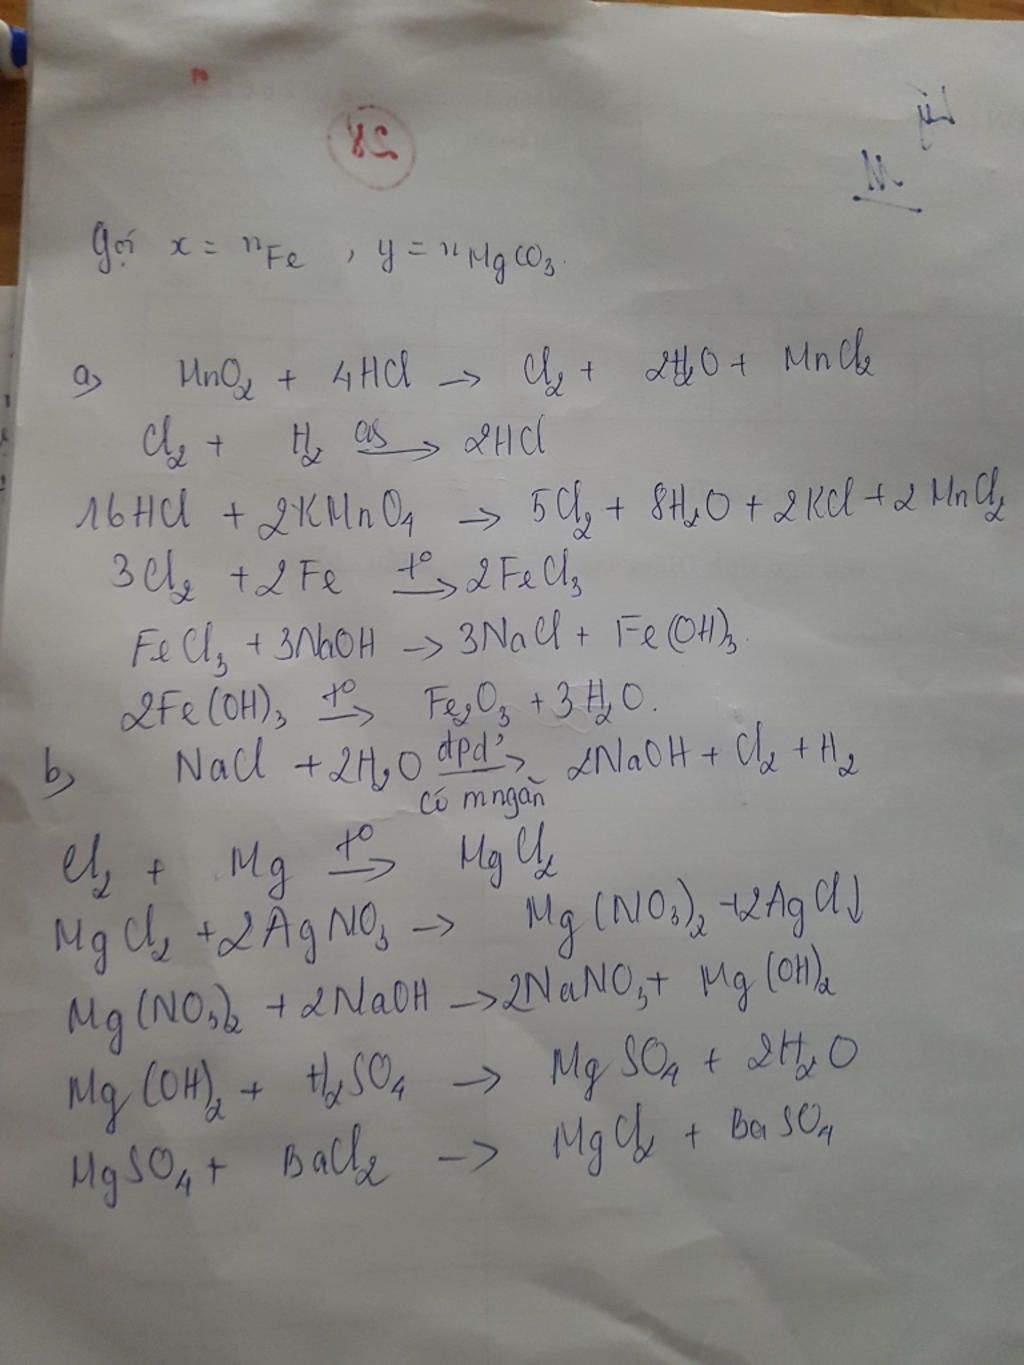 28
Gọi x = nFe , y = nMgCO3.
a, MnO2 + 4HCl → Cl2 + 2H2O + MnCl2
Cl2 + H2 as→ 2HCl
16HCl + 2KMnO4 → 5Cl2 + 8H2O + 2KCl + 2MnCl2
3Cl2 + 2Fe t°→ 2FeCl3
FeCl3 + 3NaOH → 3NaCl + Fe(OH)3.
2Fe(OH)3 t°→ Fe2O3 + 3H2O.
b, NaCl + 2H2O đpd→ 2NaOH + Cl2 + H2
có mngăn
Cl2 + Mg t°→ MgCl2
MgCl2 + 2AgNO3 → Mg(NO3)2 + 2AgCl↓
Mg(NO3)2 + 2NaOH → 2NaNO3 + Mg(OH)2
Mg(OH)2 + H2SO4 → MgSO4 + 2H2O
MgSO4 + BaCl2 → MgCl2 + BaSO4